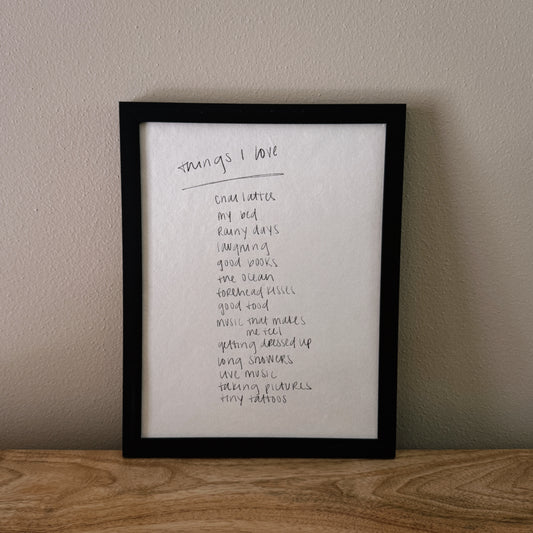 things I love
chai lattes
my bed
rainy days
laughing
good books
the ocean
forehead kisses
good food
music that makes
me feel
getting dressed up
long showers
live music
taking pictures
tiny tattoos